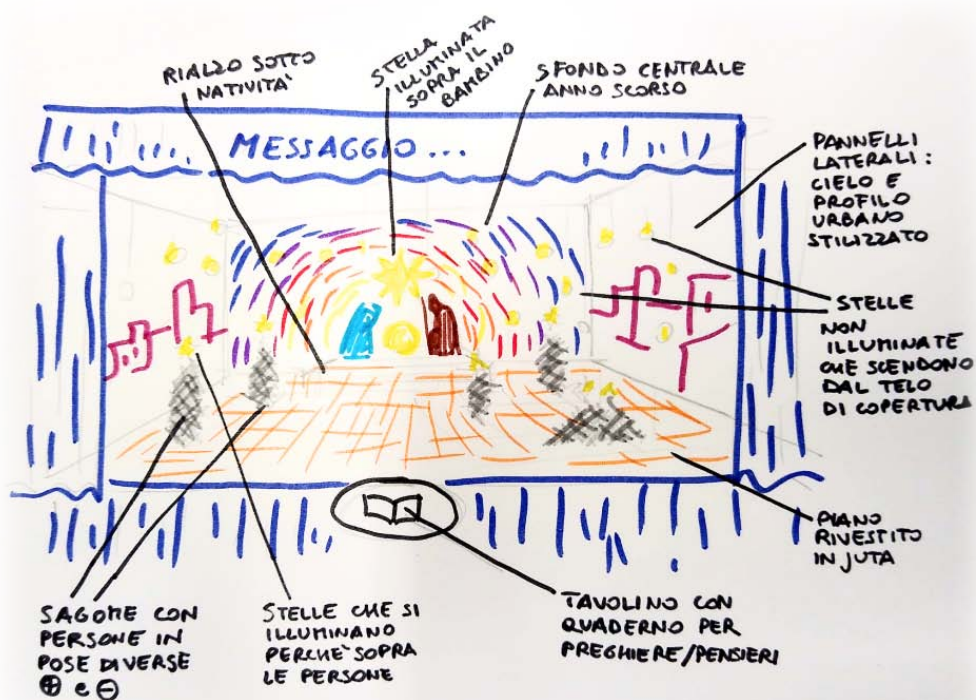 RIALZO SOTTO
NATIVITA'
STELLA
ILLUMINATA
SOPRA IL
BAMBINO
SFONDO CENTRALE
ANNO SCORSO
MESSAGGIO...
PANNELLI
LATERALI:
CIELO E
PROFILO
URBANO
STILIZZATO
STELLE
NON
ILLUMINATE
CHE SCENDONO
DAL TELO
DI COPERTURA
PIANO
RIVESTITO
IN JUTA
SAGOME CON
PERSONE IN
POSE DIVERSE
⊕ e ⊖
STELLE CHE SI
ILLUMINANO
PERCHE' SOPRA
LE PERSONE
TAVOLINO CON
QUADERNO PER
PREGHIERE/PENSIERI